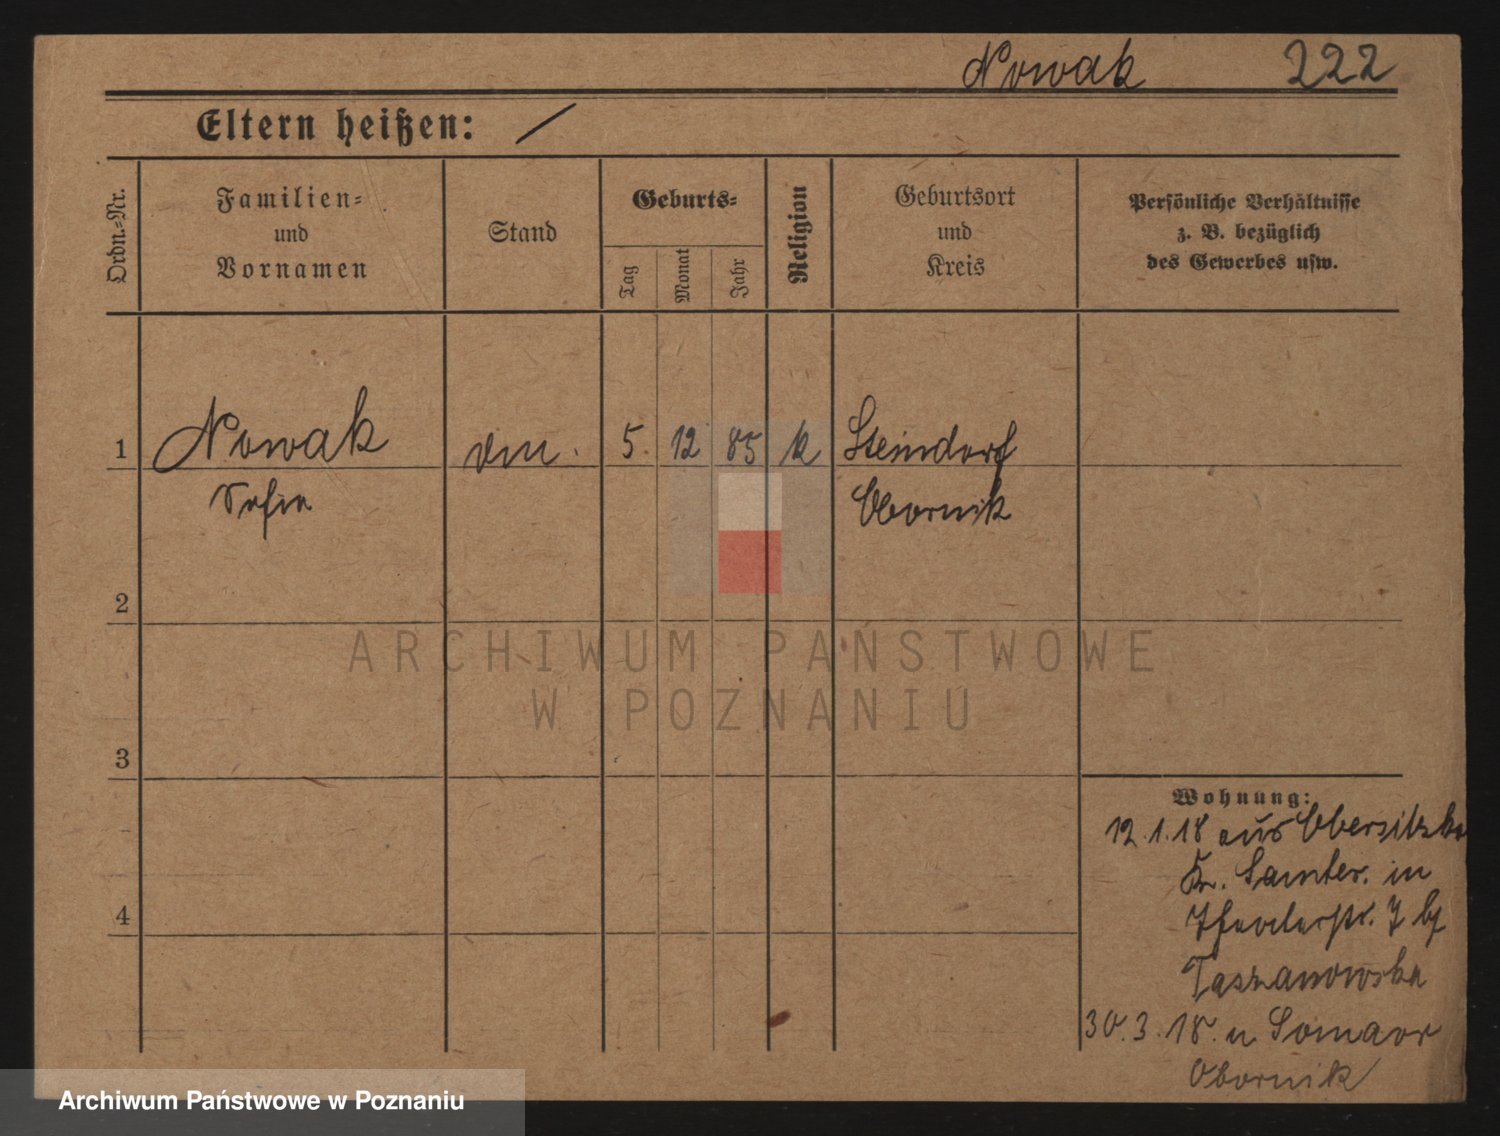 Nowak 222
Eltern heißen: /
Ordn.=Nr.
Familien=
und
Vornamen
Stand
Geburts=
Tag
Monat
Jahr
Religion
Geburtsort
und
Kreis
Persönliche Verhältnisse
z. B. bezüglich
des Gewerbes usw.
1 Nowak 5. 12 85 k Steindorf
Sofia Obornik
2
3
4
Wohnung:
12.1.18 aus Obersitzko
Kr. Samter. in
7 bf
Taszanowska
30.3.18. n.
Obornik
ARCHIWUM PAŃSTWOWE
W POZNANIU
Archiwum Państwowe w Poznaniu